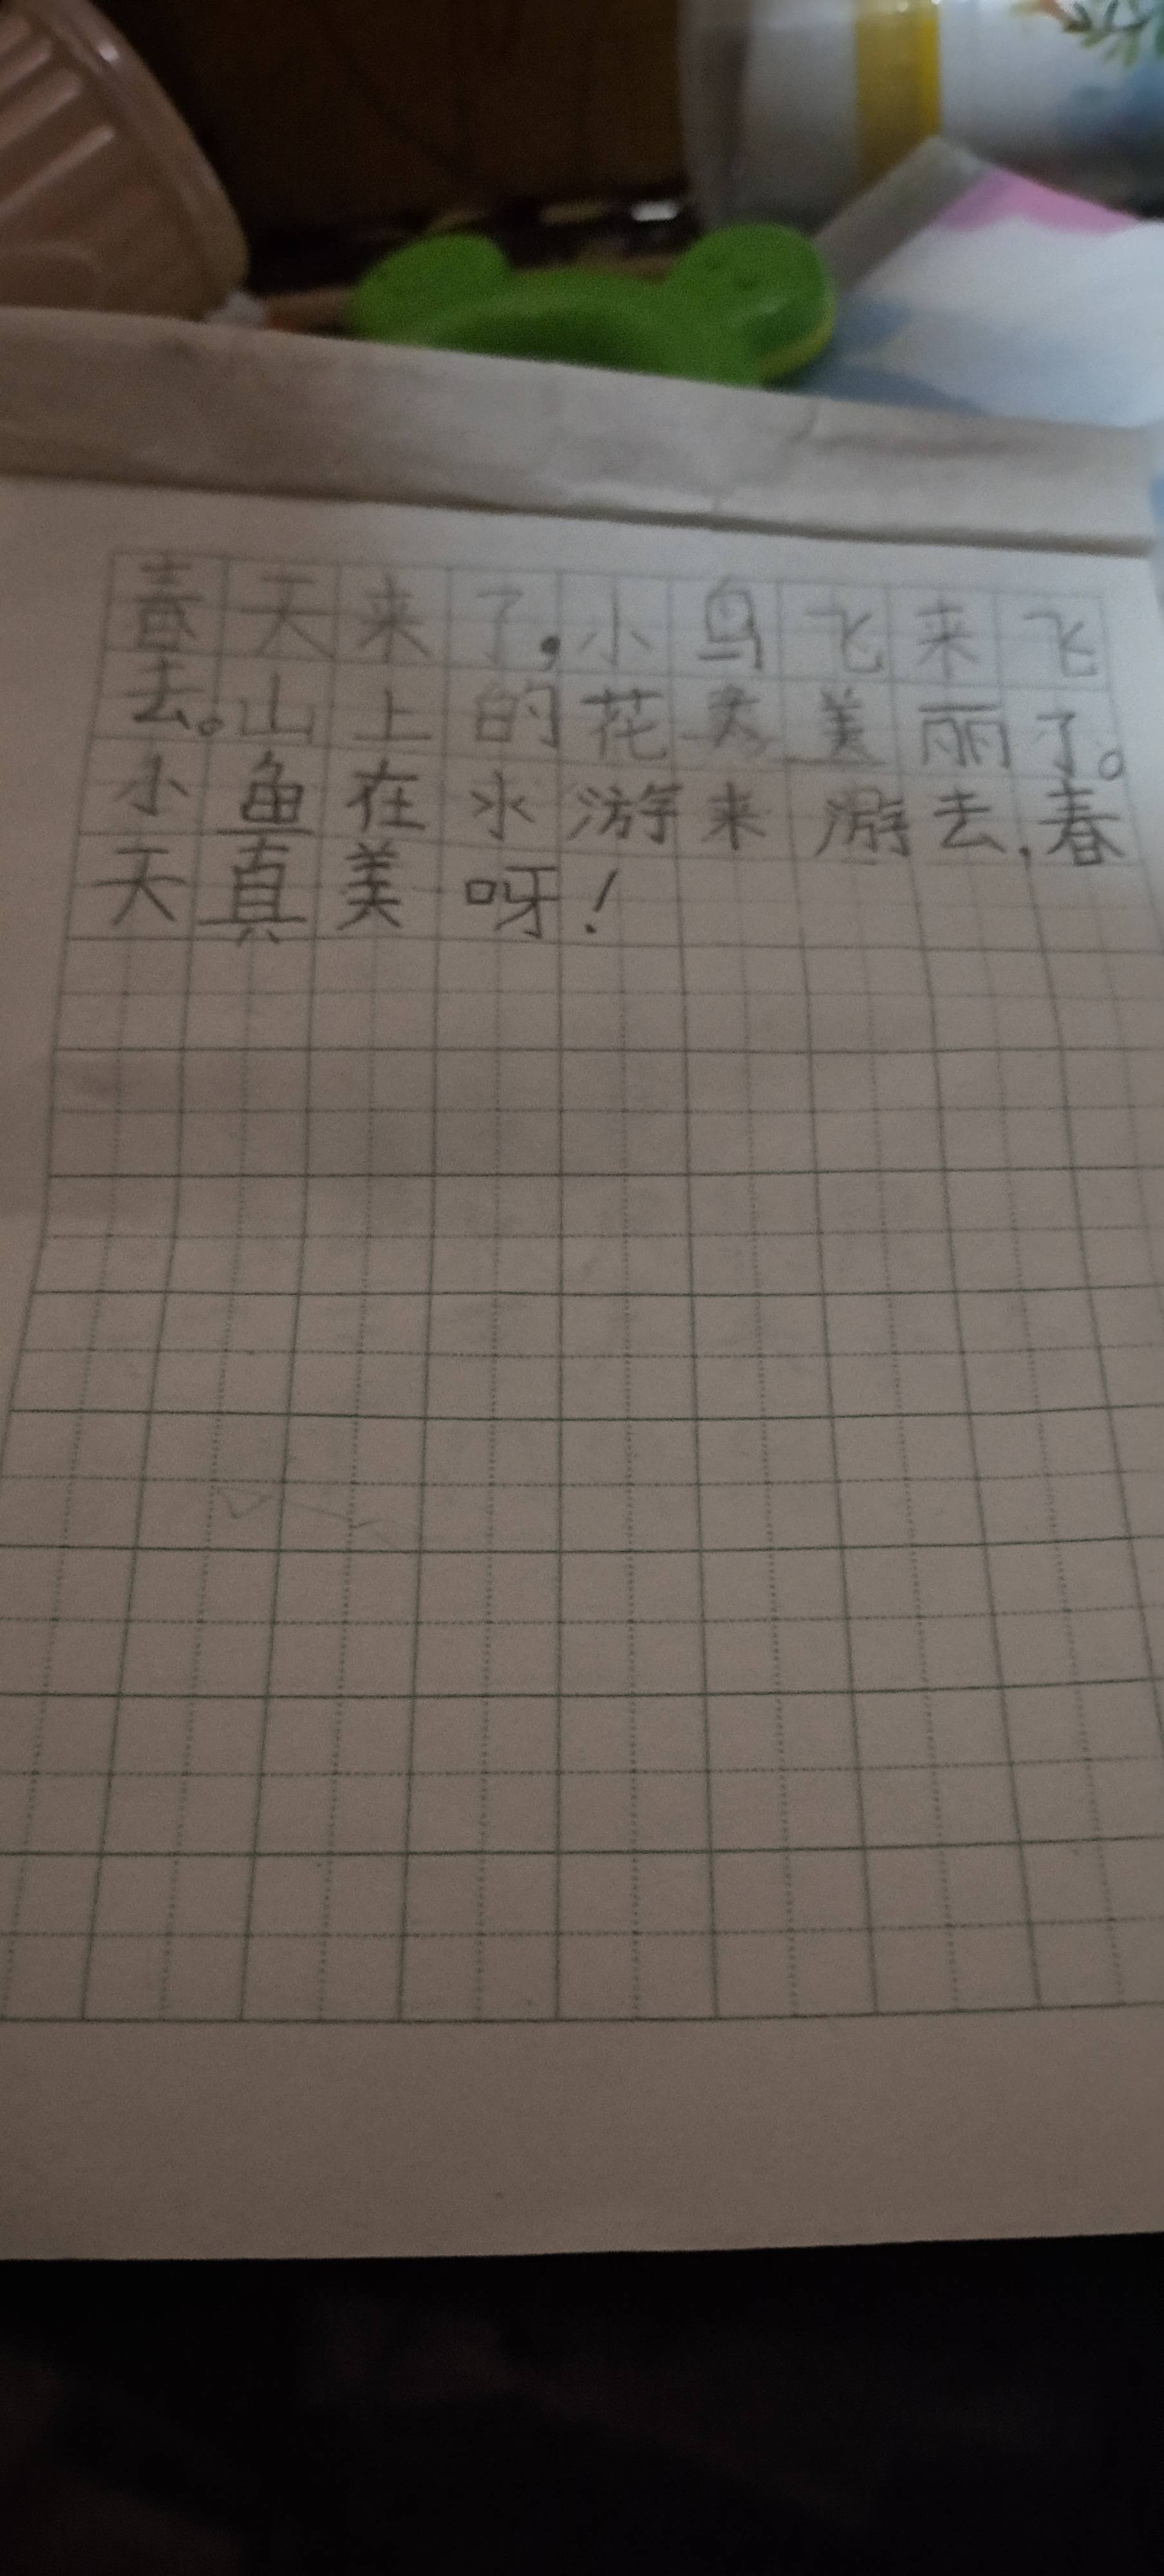 春天来了，小鸟飞来飞
去。山上的花太美丽了。
小鱼在水游来游去，春
天真美呀！